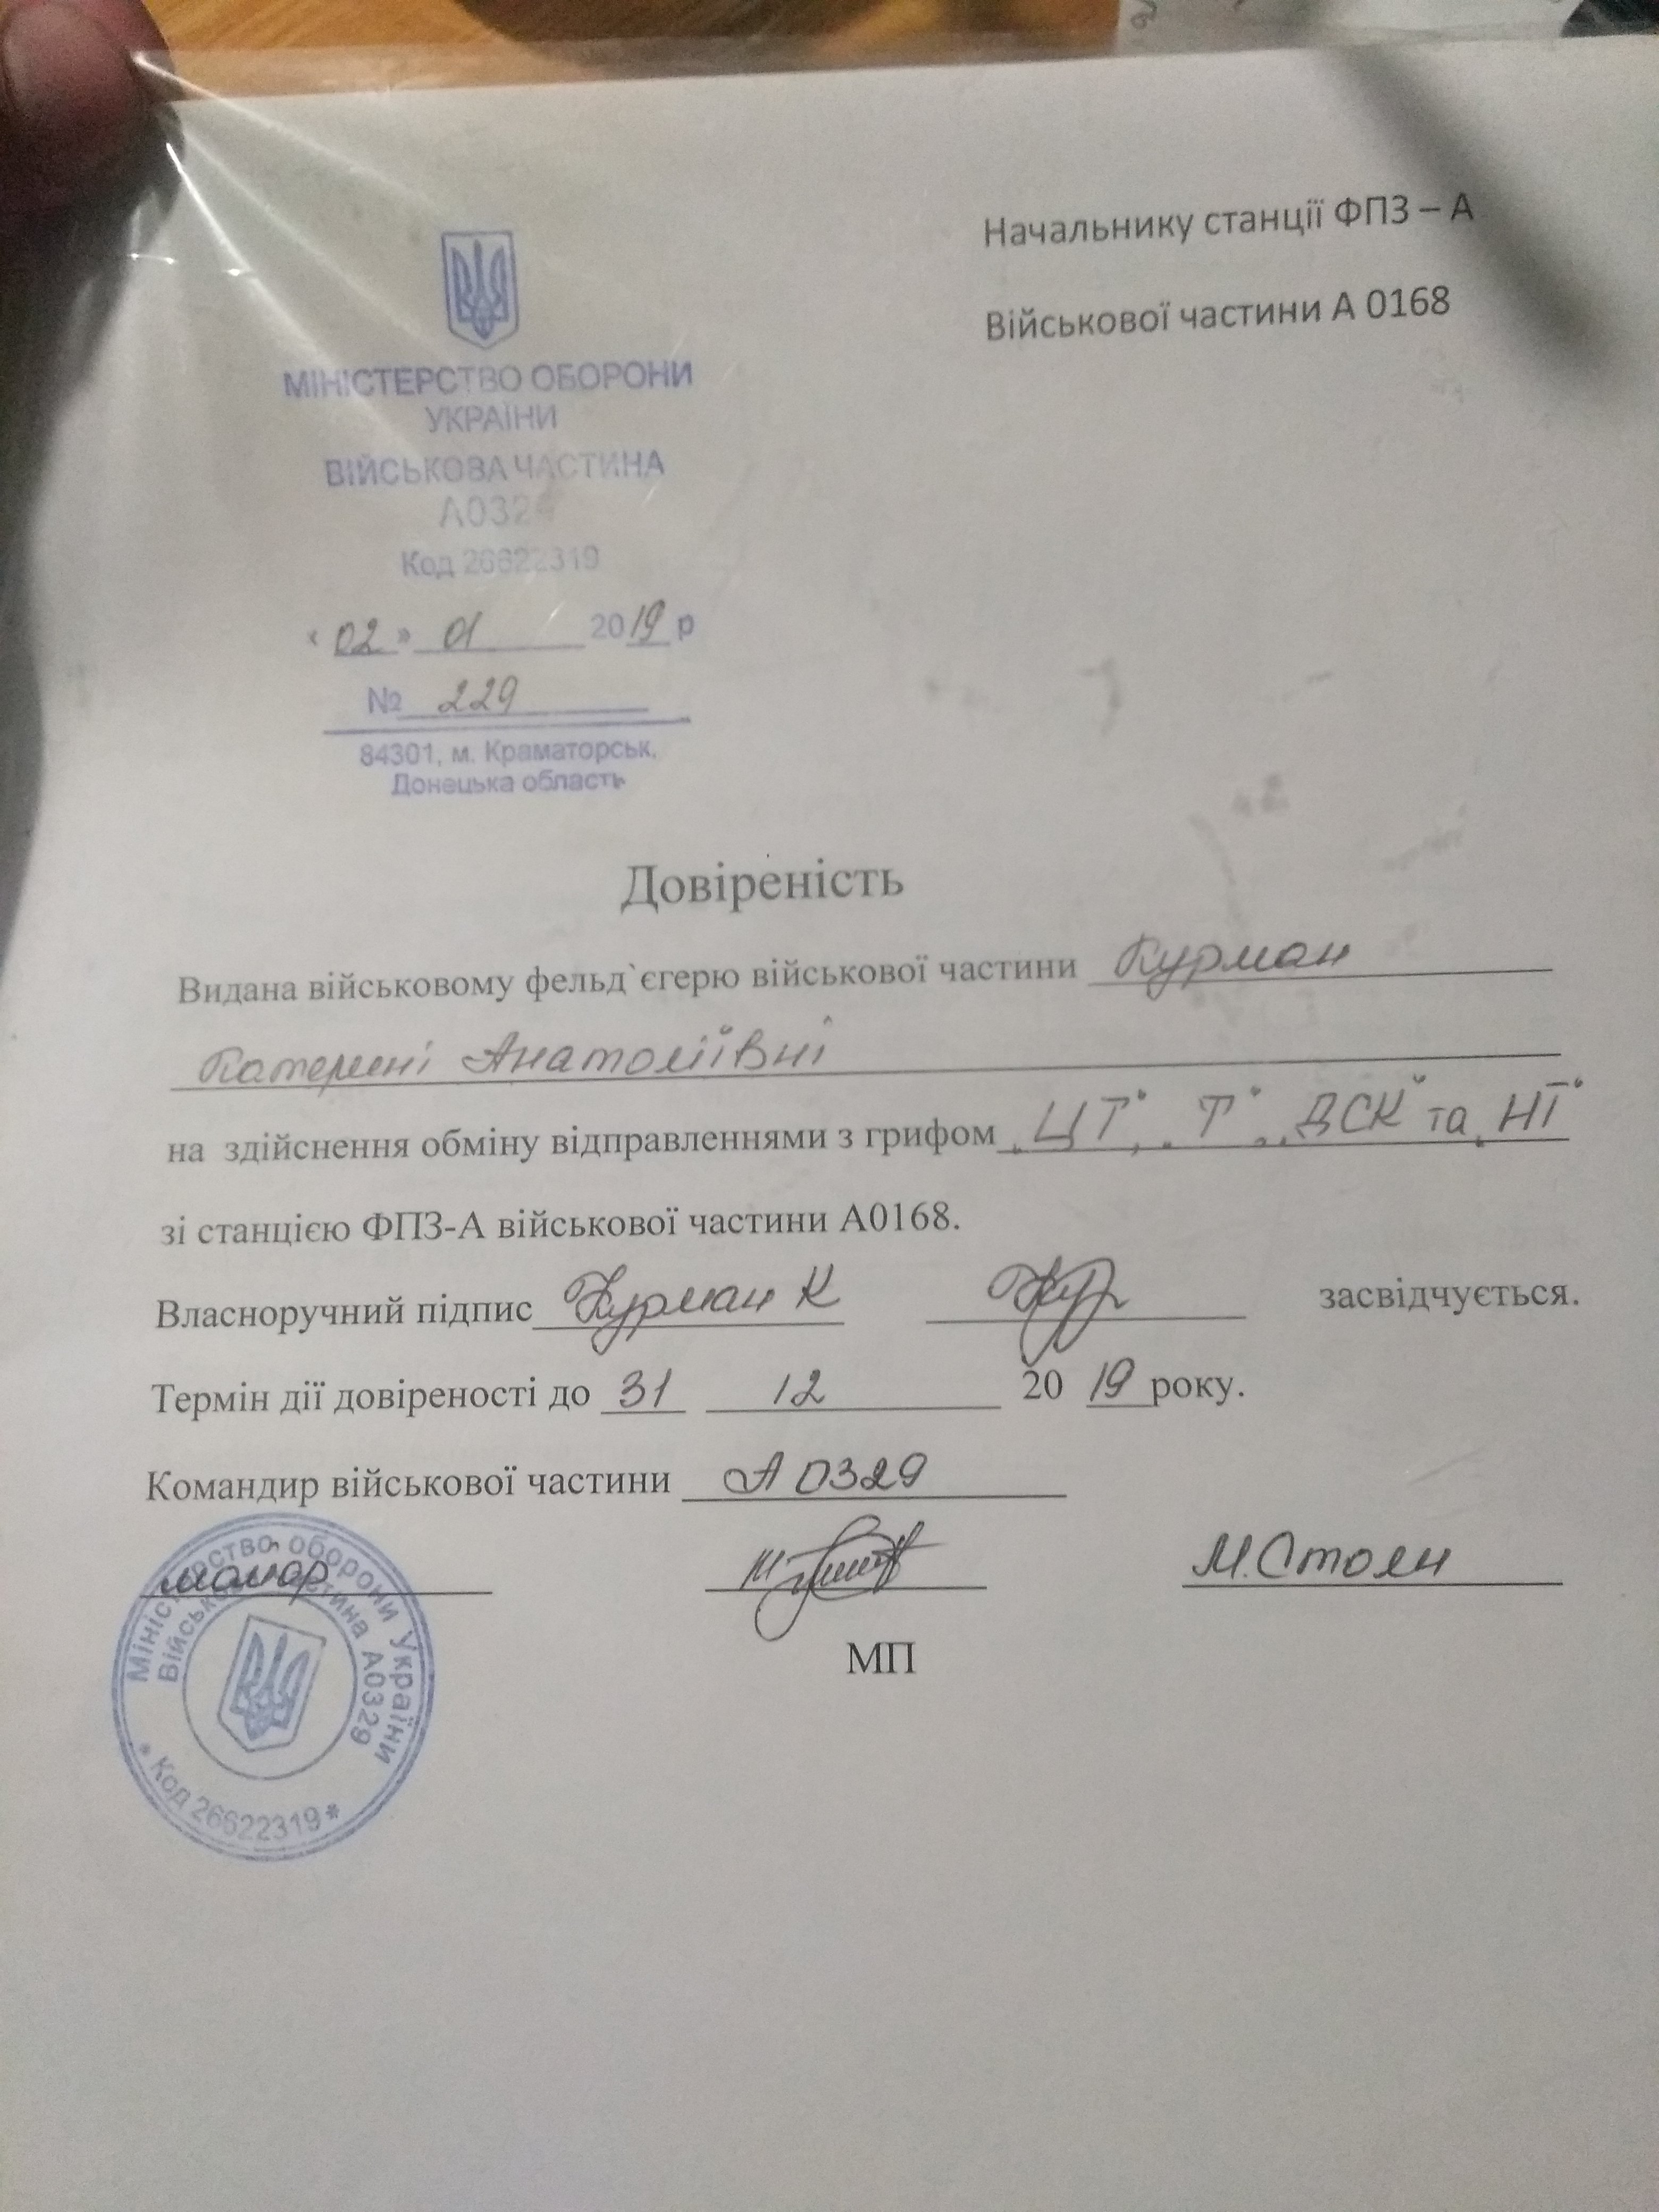 Начальнику станції ФПЗ – А
Військової частини А 0168
МІНІСТЕРСТВО ОБОРОНИ
УКРАЇНИ
ВІЙСЬКОВА ЧАСТИНА
Код 26622319
« 02 » 01 2019 р
№ 229
84301, м. Краматорськ,
Донецька область
Довіреність
Видана військовому фельд`єгерю військової частини Курман
Катерині Анатоліївні
на здійснення обміну відправленнями з грифом „ЦТ", „Т", „ДСК" та „НТ"
зі станцією ФПЗ-А військової частини А0168.
Власноручний підпис Курман К засвідчується.
Термін дії довіреності до 31 12 20 19 року.
Командир військової частини А 0329
майор М.Столи
МП
Міністерство оборони України
Військова частина А0329
* Код 26622319 *